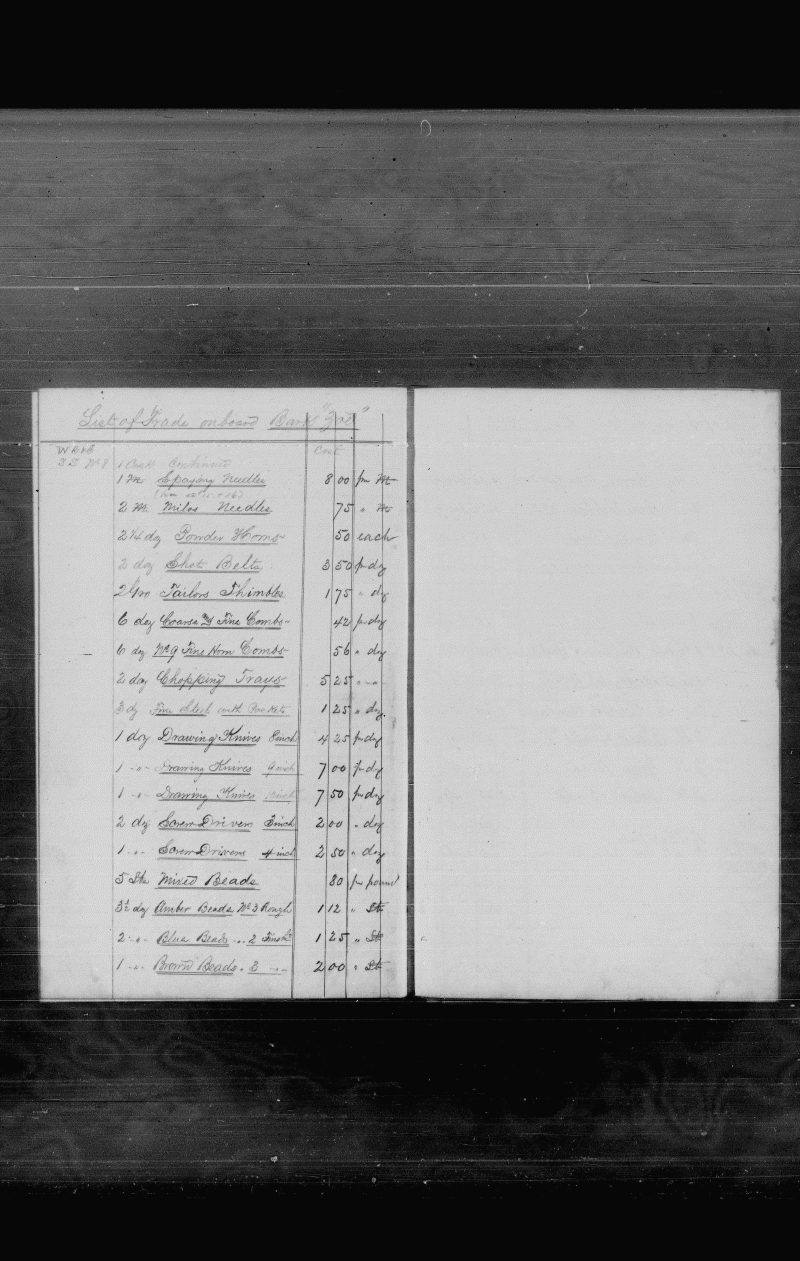 List of Trade onboard Bark "Zoe"
Cost
No 8 1 Cask Continued
1 M Spaying Needles 8 00 per M
2 M. Milos Needles 75 " M
2 1/4 doz Powder Horns 50 each
2 doz Shot Belts 3 50 pr doz
2 Gro Tailors Thimbles 1 75 " doz
6 doz Coarse & Fine Combs 42 pr doz
6 doz No 9 Fine Horn Combs 56 " doz
2 doz Chopping Trays 5 25 " -"-
3 dz Fine Steel with Pockets 1 25 " doz.
1 doz Drawing Knives 8 inch 4 25 pr doz
1 -"- Drawing Knives 9 inch 7 00 pr dz
1 -"- Drawing Knives inch 7 50 pr doz
2 dz Screw Drivers 3 inch 2 00 " doz
1 -"- Screw Drivers 4 inch 2 50 " doz
5 lbs Mixed Beads 80 pr pound
3 1/2 doz Amber Beads No 3 Rough 1 12 " St
2 -"- Blue Beads -"- 2 Finsh 1 25 " St
1 -"- Brown Beads " 3 -"- 2 00 " St